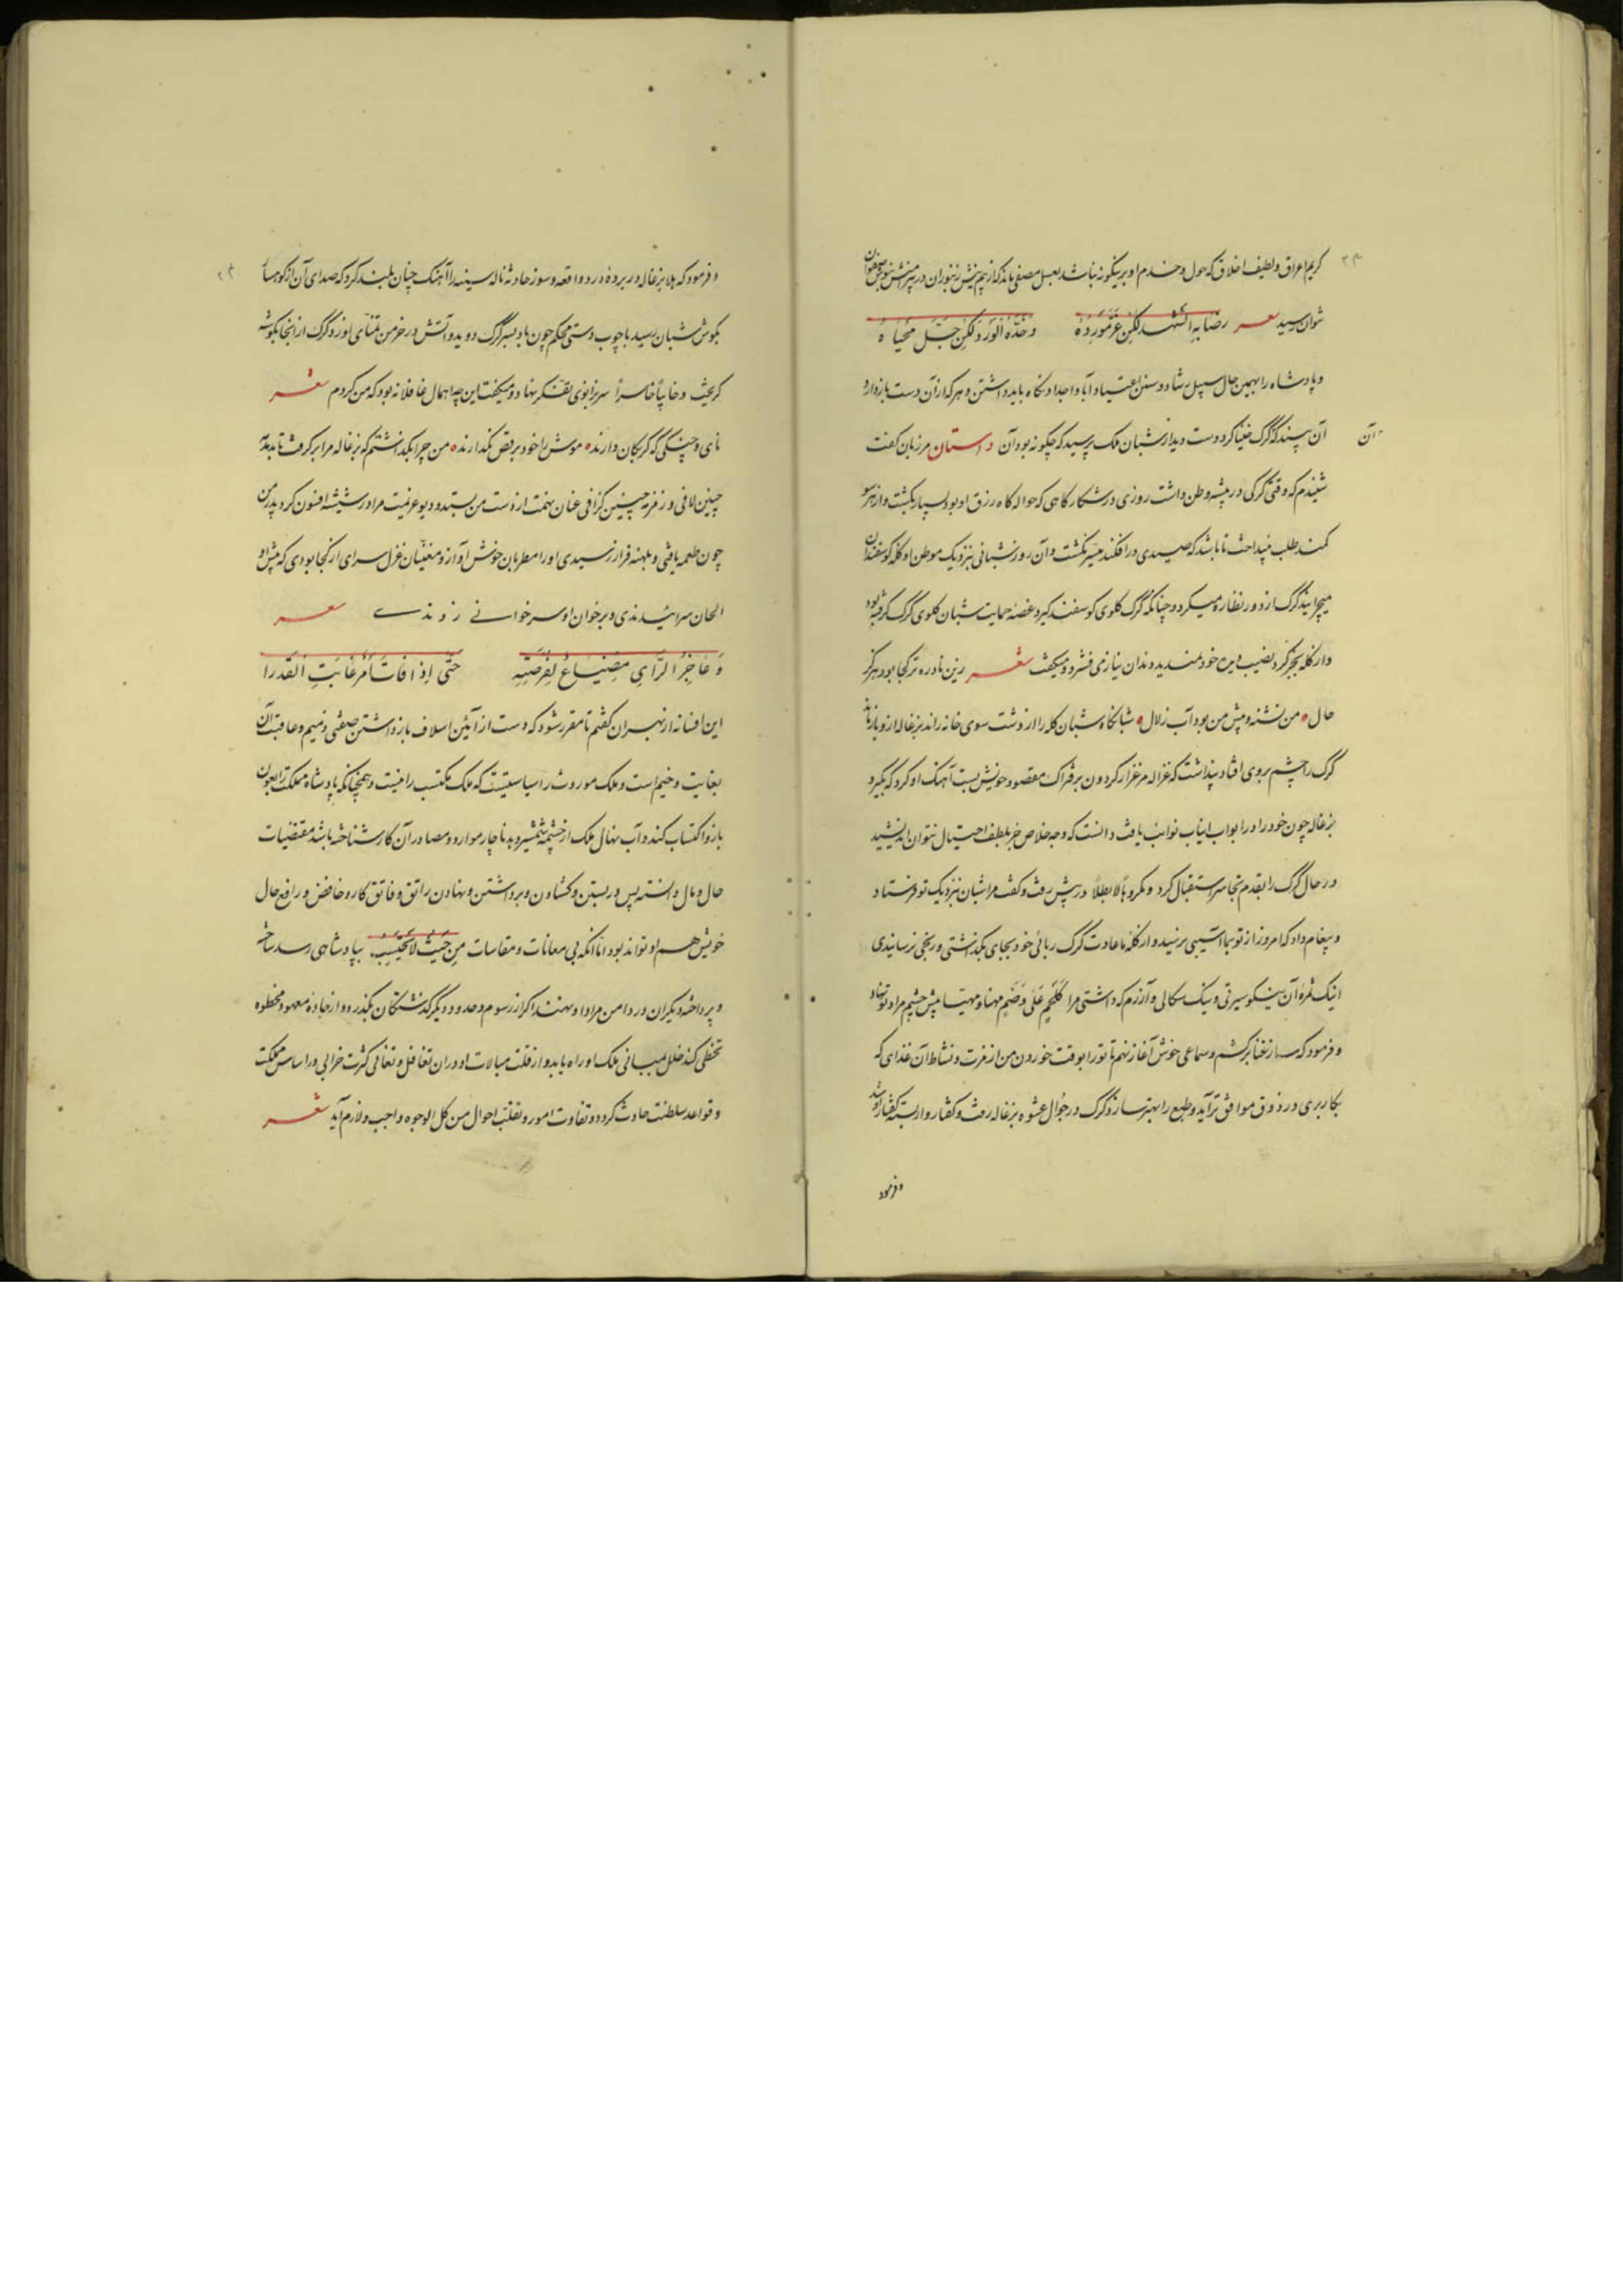 کریم اعراق و لطیف اخلاق که حول و خدم او برینگونه نباشد بعسل مصفی ماند که از بیم نیش زنبوران در پیرامنش بنوش صفوان
نتوان رسید شعر رضابه الشهد لکن عز مورده وخده الورد لکن جل مجناه
و پادشاه را بهمین حال سبیل رشاد و سنن اعتیاد آبا و اجداد نگاه باید داشتن و هرکه از آن دست باز دارد
آن بیند که گرگ خنیاگر دوست دید از شبان ملک پرسید که چگونه بود آن داستان مرزبان گفت
آن
شنیدم که وقتی گرگی در بیشه وطن داشت روزی در شکارگاهی که حواله گاه رزق او بود بسیار بگشت و از هر سو
کمند طلب میانداخت تا باشد که صیدی در افکند میسر نگشت و آن روز شبانی بنزدیک موطن او گله گوسفندان
میچرانید گرگ از دور نظاره میکرد و چنانکه گرگ گلوی گوسفند گیرد غصه حمایت شبان گلوی گرگ گرفته بود
و از گله بجز گرد نصیب دیده خود نمیدید دندان نیاز می فشرد و میگفت شعر زین نادره تر کجا بود هرگز
حال ه من تشنه و پیش من بود آب زلال ه شبانگاه شبان گله را از دشت سوی خانه راند بزغاله ازو باز ماند
گرگ را چشم بروی افتاد پنداشت که غزاله مرغزار گردون بر فتراک مقصود خویش بست آهنگ او کرد که بگیرد
بزغاله چون خود را در انیاب نوایب یافت دانست که وجه خلاص جز بلطف احتیال نتوان اندیشید
در حال گرگ را بقدم تجاسر استقبال کرد و مکرهاً لابطلاً در پیش رفت و گفت مرا شبان بنزدیک تو فرستاد
و پیغام داد که امروز از تو بما آسیبی نرسید و از گله ما عادت گرگ ربائی خود بجای بگذاشتی و رنجی نرسانیدی
اینک ثمره آن نیکو سیرتی و نیک سگالی و آزرم که داشتی مرا کلحم علی وضم مهنا و مهیا پیش چشم مراد تو نهاد
و فرمود که ساز غنا برکشم و سماعی خوش آغاز نهم تا تو را بوقت خوردن من از عزت و نشاط آن غذای که
بکار بری در ذوق موافق تر آید و طبع را بهتر سازد گرگ در جوال عشوه بزغاله رفت و کفتار وار بسته گفتار او شد
و فرمود
و فرمود که هلا بزغاله در پرده درد واقعه و سوز حادثه ناله سینه را آهنگ چنان بلند کرد که صدای آن از کوهسار
بگوش شبان رسید با چوب دستی محکم چون باد بسر گرگ دوید و آتش در خرمن تمنای او زد گرگ از آنجا بگوشه
گریخت و خایباً خاسراً سر بزانوی تفکر نهاد و میگفت این چه اهمال غافلانه بود که من کردم شعر
نای و چنگی که گربکان دارند ه موش را خود برقص نگذارند ه من چرا بگذاشتم که بزغاله مرا بز گرفت تا بدمدمه
چنین لافی و زمزمه چنین گزافی عنان نهمت از دست من بستد و دیو عزیمت مرا در شیشه افسون کرد پدر من
چون طعمه یافتی و بلهنه فراز رسیدی او را مطربان خوش آواز و مغنیان غزل سرای از کجا بودی که پیش او
الحان سرائیدندی و بر خوان او سرخوانی زدندی شعر
وعاجز الرای مضیاع لفرصته حتی اذا فات امر عاتب القدرا
این افسانه از بهر آن گفتم تا مقرر شود که دست از آئین اسلاف باز داشتن صفتی ذمیم و عاقبت آن
بغایت وخیم است و ملک موروث را سیاستیست که ملک مکتسب را نیست و همچنانکه پادشاه مملکت را بعون
بازو اکتساب کند و آب نهال ملک از چشمه شمشیر دهد ناچار موارد و مصادر آن کار شناخته باشد مقتضیات
حال و مال دانسته پس در بستن و گشادن و برداشتن و نهادن راتق و فاتق کار و خافض و رافع حال
خویش هم او تواند بود اما آنکه بی معانات و مقاسات من حیث لا یحتسب بپادشاهی رسد ساخته
و پرداخته دیگران در دامن مراد او نهند اگر از رسوم و حدود دیگر گذشتگان بگذرد و از جاده معهود و محظوه
تخطی کند خلل بمبانی ملک او راه یابد و از قلت مبالات او در آن تغافل و تغالی کثرت خرابی در اساس مملکت
و قواعد سلطنت حادث گردد و تفاوت امور و تقلب احوال من کل الوجوه واجب و لازم آید شعر